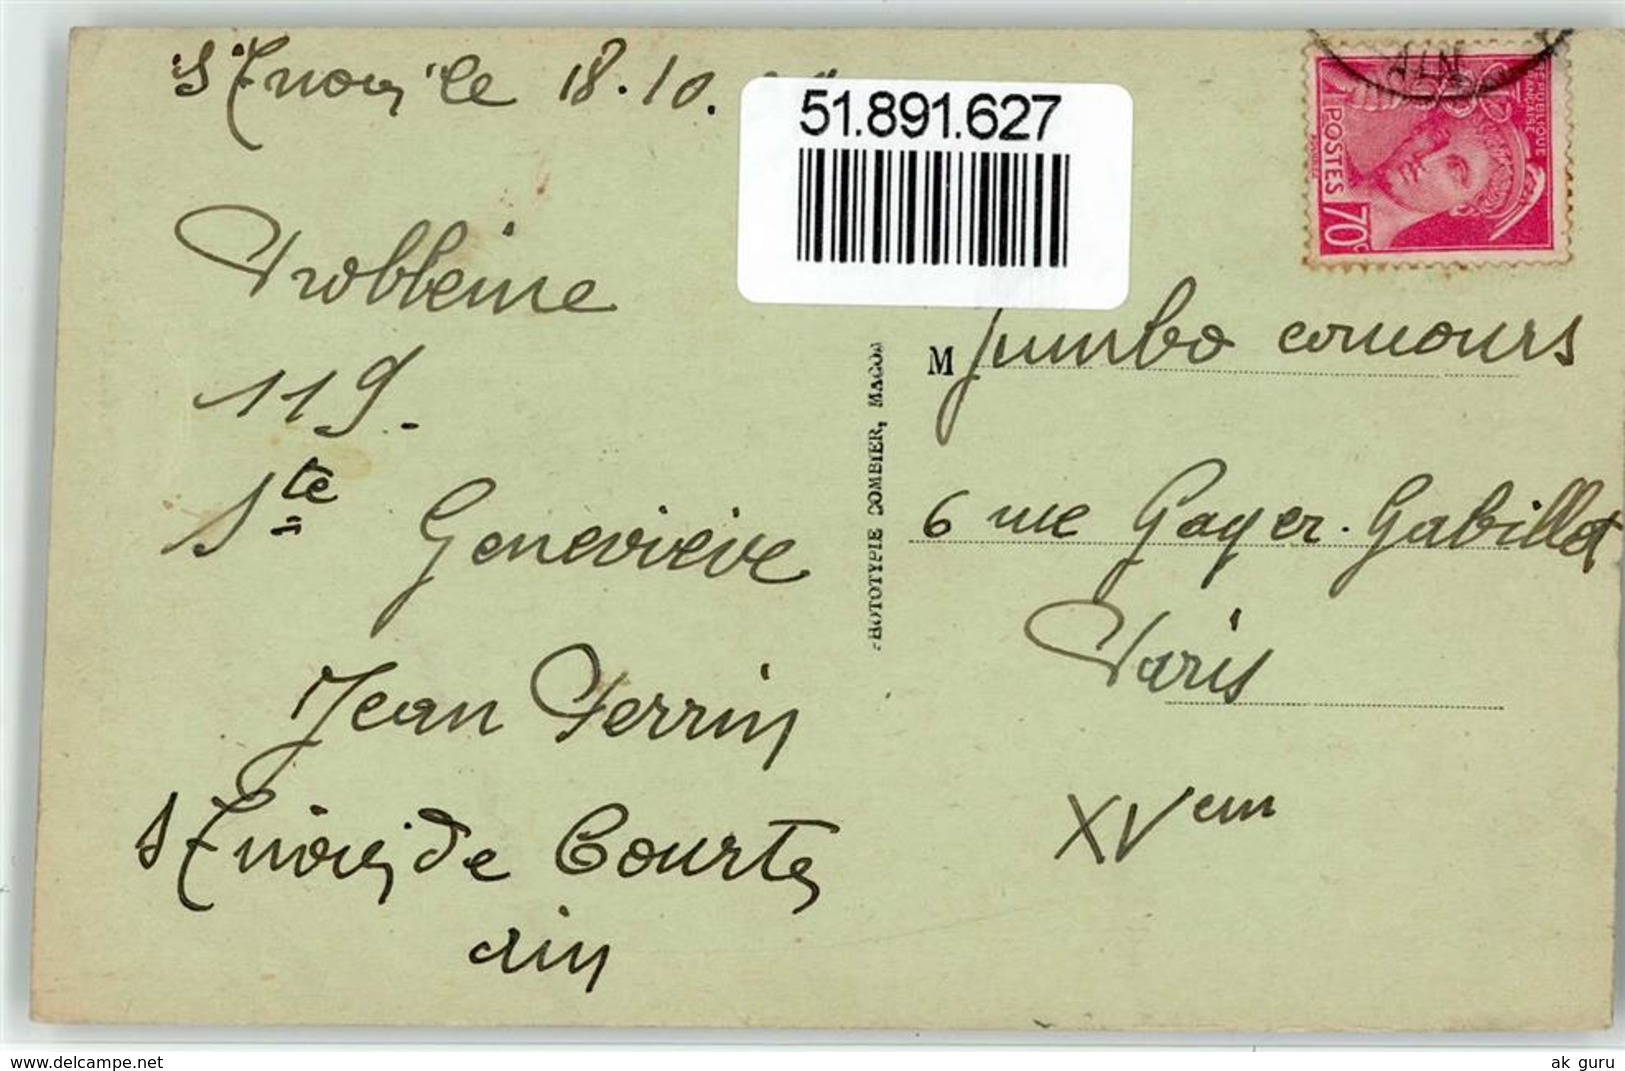 St Énogat le 18.10.
51.891.627
ALN
RÉPUBLIQUE FRANÇAISE
POSTES
70c
Problème
119.
Ste Geneviève
Jean Perrin
de Courtes
Ain
PHOTOTYPIE COMBIER, MACON
M Jumbo concours
6 rue Gager-Gabillot
Paris
XVem
ak guru